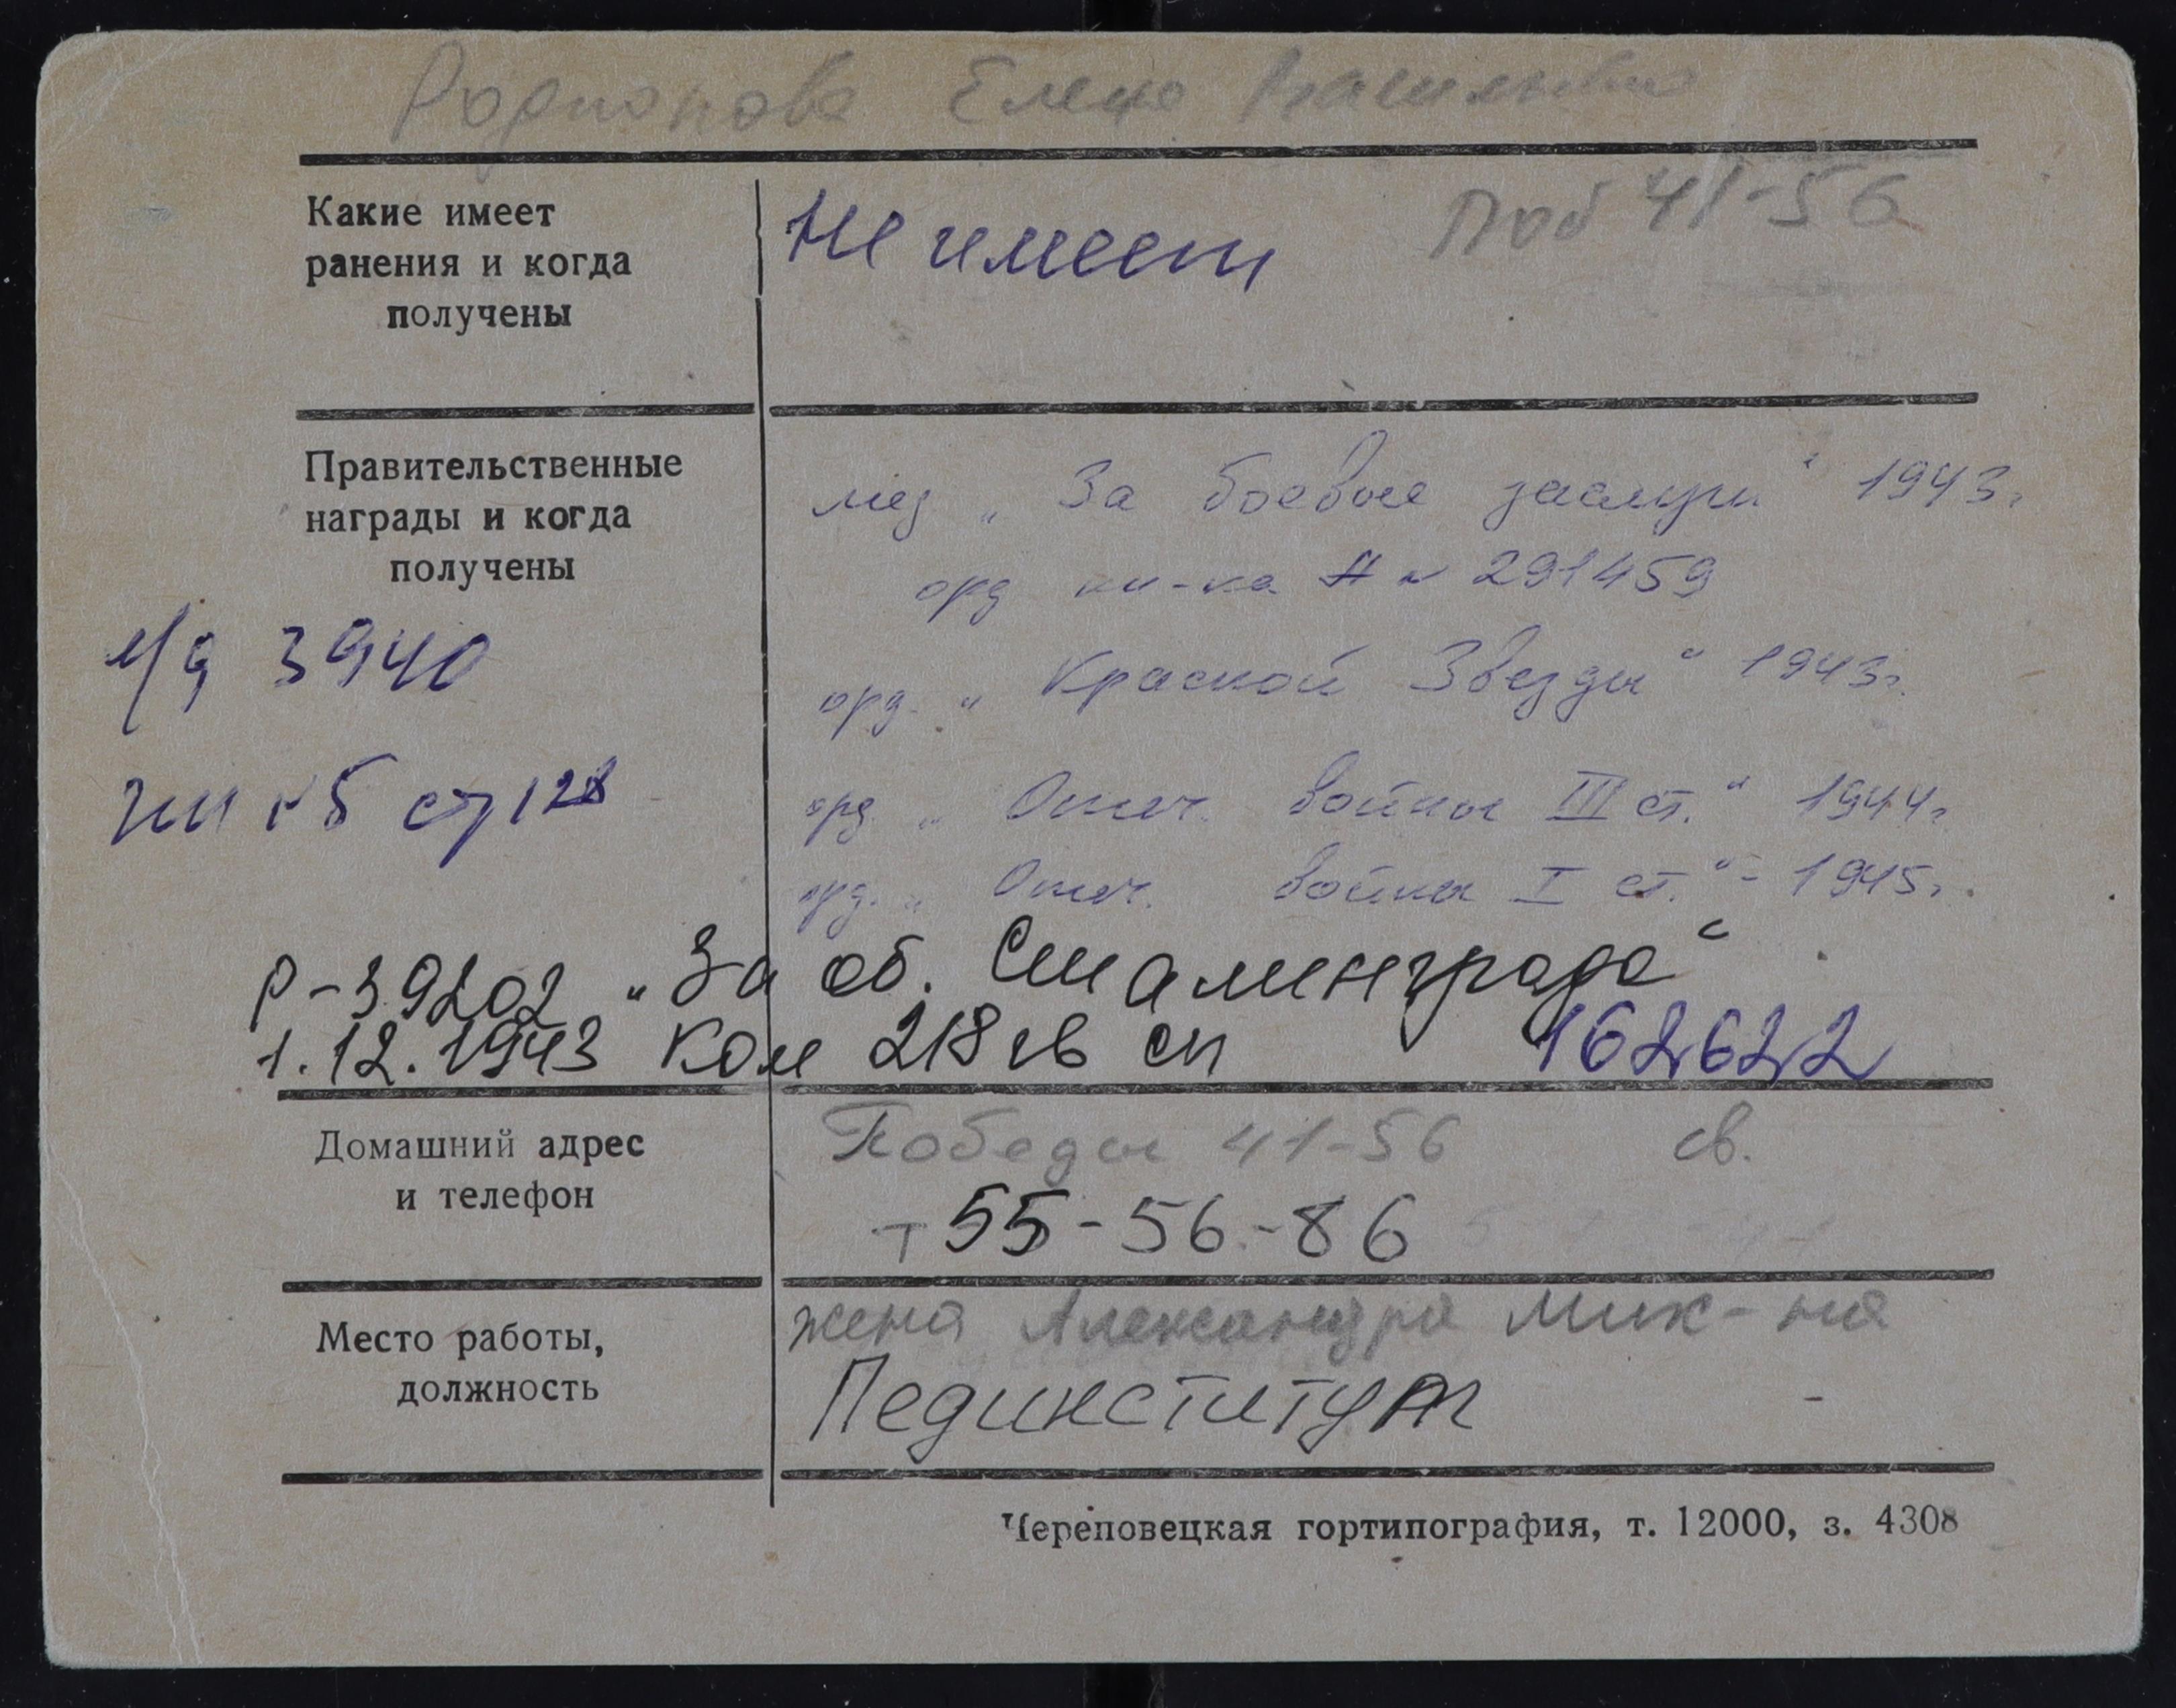 Родионова Елена Васильевна
Какие имеет
ранения и когда
получены
Не имеет
Поб 41-56
Правительственные
награды и когда
получены
мед „За боевые заслуги“ 1943г
орд кн-ка № 291459
орд. „Красной Звезды“ 1943г.
орд „Отеч. войны III ст.“ 1944г
орд. „Отеч. войны I ст.“ - 1945г.
л/д 3940
кн №5 ст 128
Р-39202 „За об. Сталинграда“
1.12.1943 Ком 218 гв сп 162622
Домашний адрес
и телефон
Победы 41-56 св.
т 55-56-86
Место работы,
должность
жена Александра Мик-на
Пединститут
Череповецкая гортипография, т. 12000, з. 4308